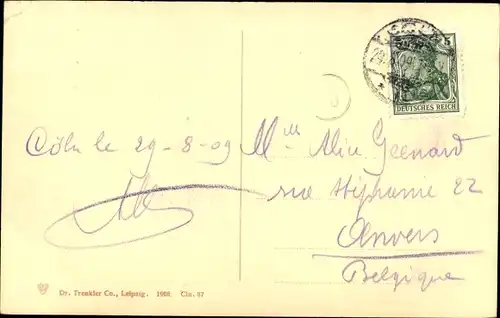 Cöln le 29-8-09
Mlle Alice Geenard
rue Stéphanie 22
Anvers
Belgique
5
DEUTSCHES REICH
Dr. Trenkler Co., Leipzig. 1906 Cln. 67